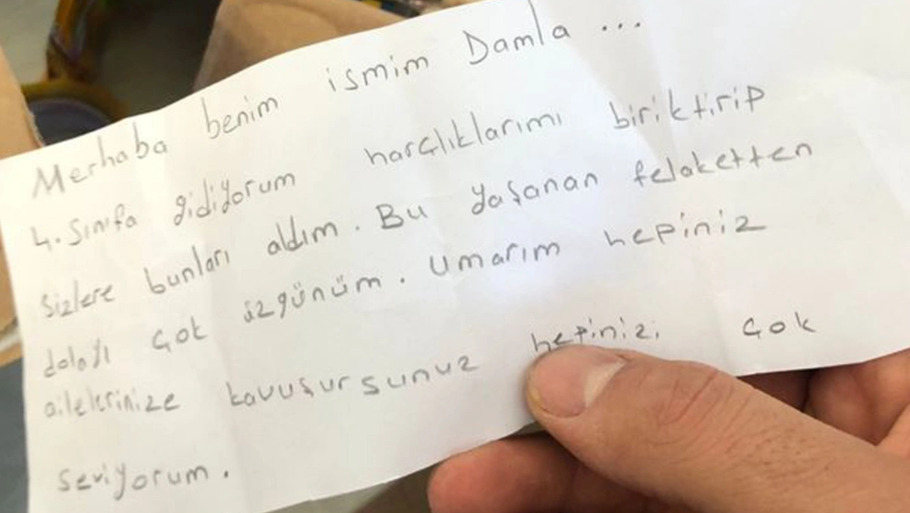 Merhaba benim ismim Damla ...
4. Sınıfa gidiyorum harçlıklarımı biriktirip
Sizlere bunları aldım. Bu yaşanan felaketten
dolayı çok üzgünüm. Umarım hepiniz
ailelerinize kavuşursunuz hepinizi çok
seviyorum.